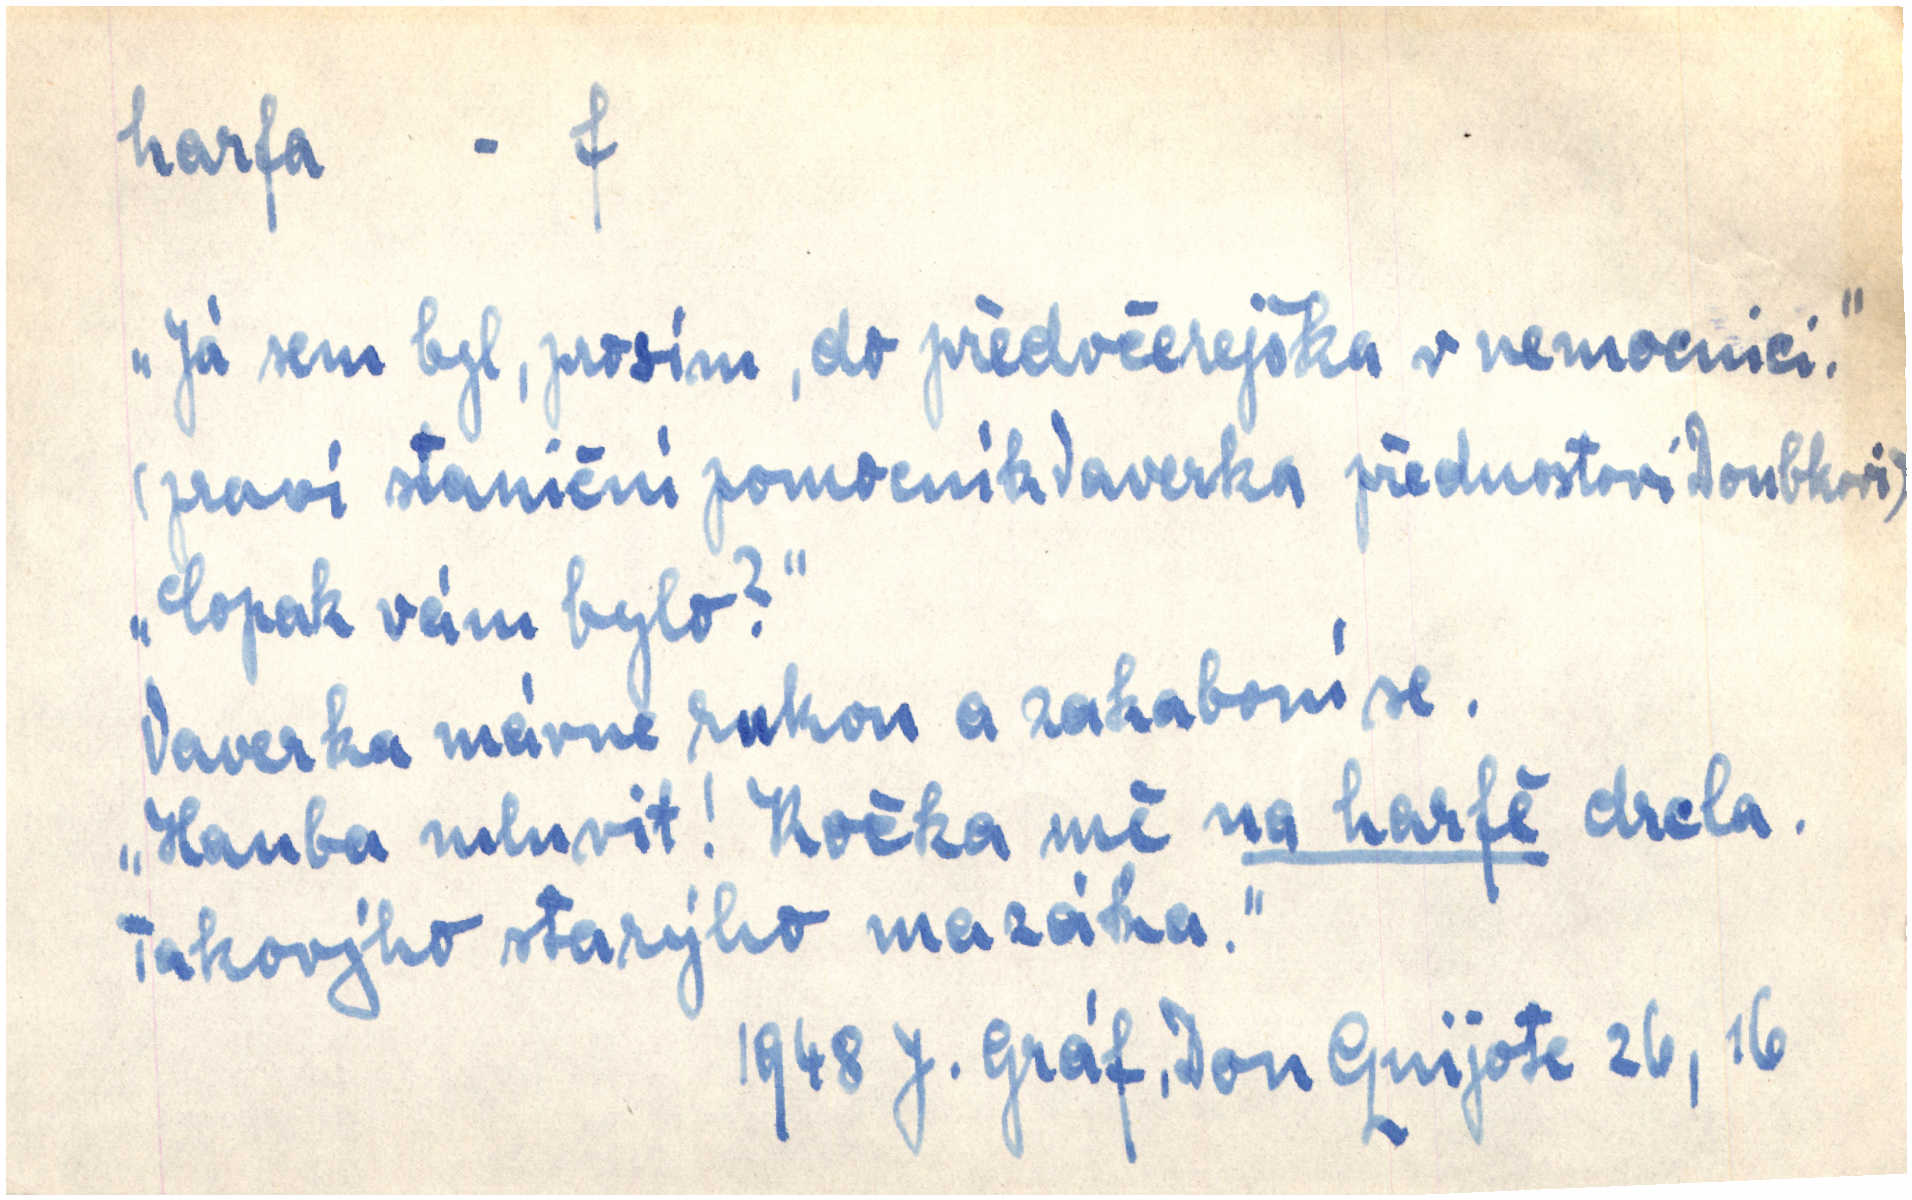 harfa - f
„Já sem byl, prosím, do předvčerejška v nemocnici."
(praví staniční pomocník Vaverka přednostovi Doubkovi)
„Copak vám bylo?"
Vaverka mávne rukou a zakaboní se.
„Hanba mluvit! Kočka mě na harfě drcla.
Takovýho starýho mazáka."
1948 J. Gráf, Don Quijote 26, 16